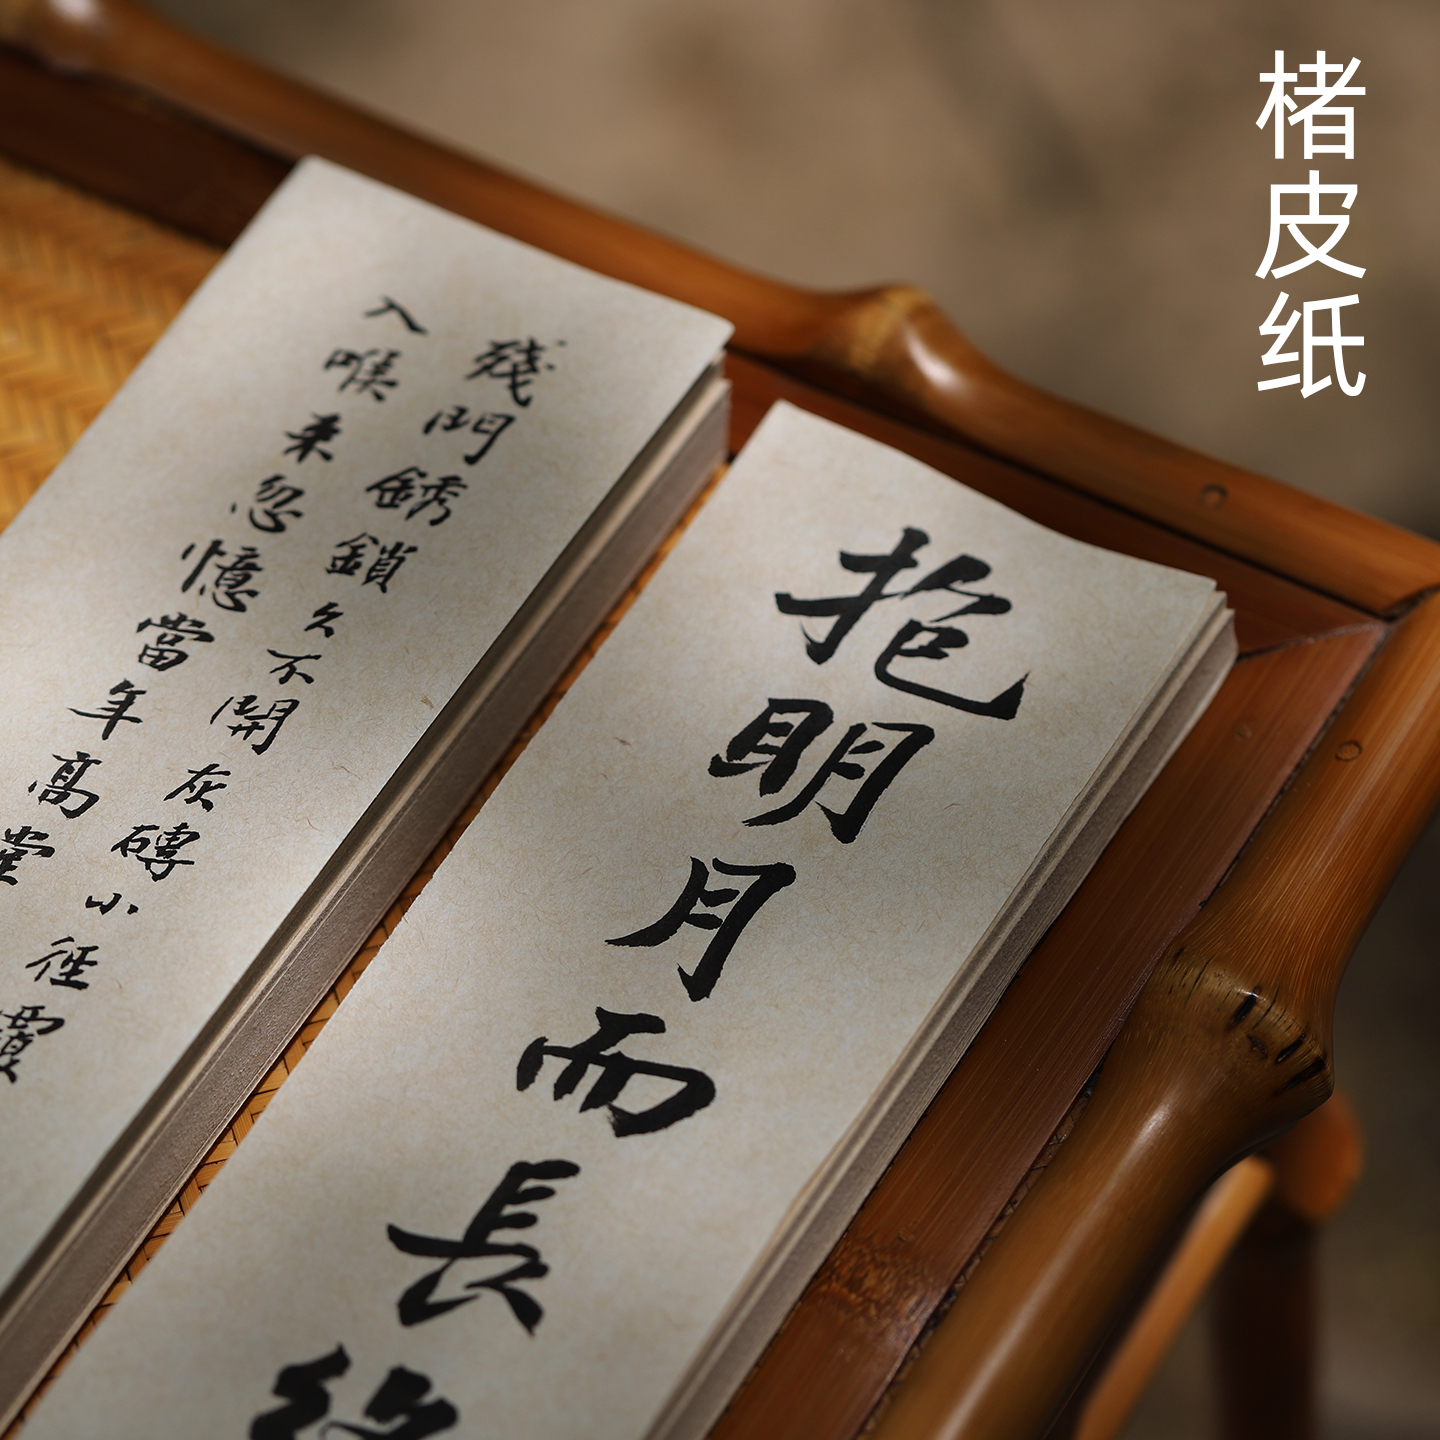 楮皮纸
抱明月而長終
殘門銹鎖久不開灰磚小徑覆
入喉来忽憶當年高堂